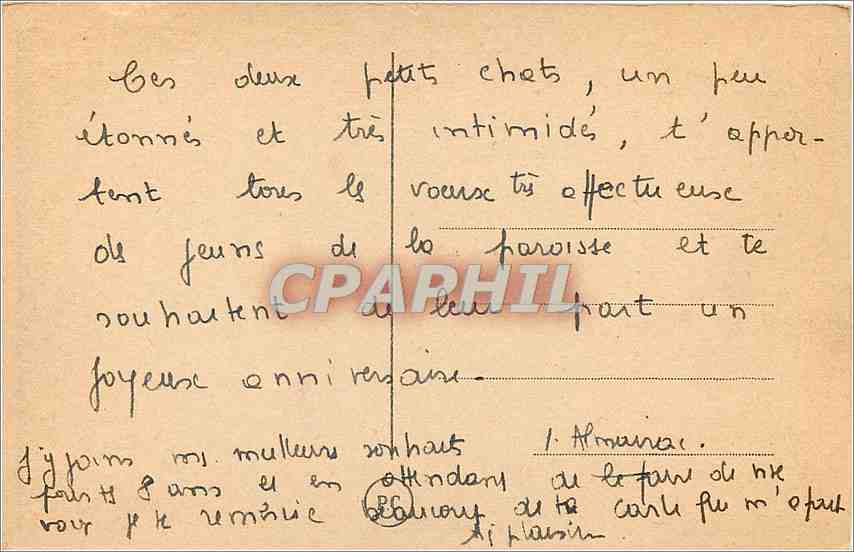 Ces deux petits chats, un peu
étonnés et très intimidés, t'appor-
tent tous les voeux très affectueux
des jeunes de la paroisse et te
CPAPHIL
souhaitent de leur part un
joyeux anniversaire.
J. Almairac.
j'y joins mes meilleurs souhaits
pour tes 8 ans et en attendant de le faire de vive
PC
voix je te remercie beaucoup de ta carte m'a fait
plaisir